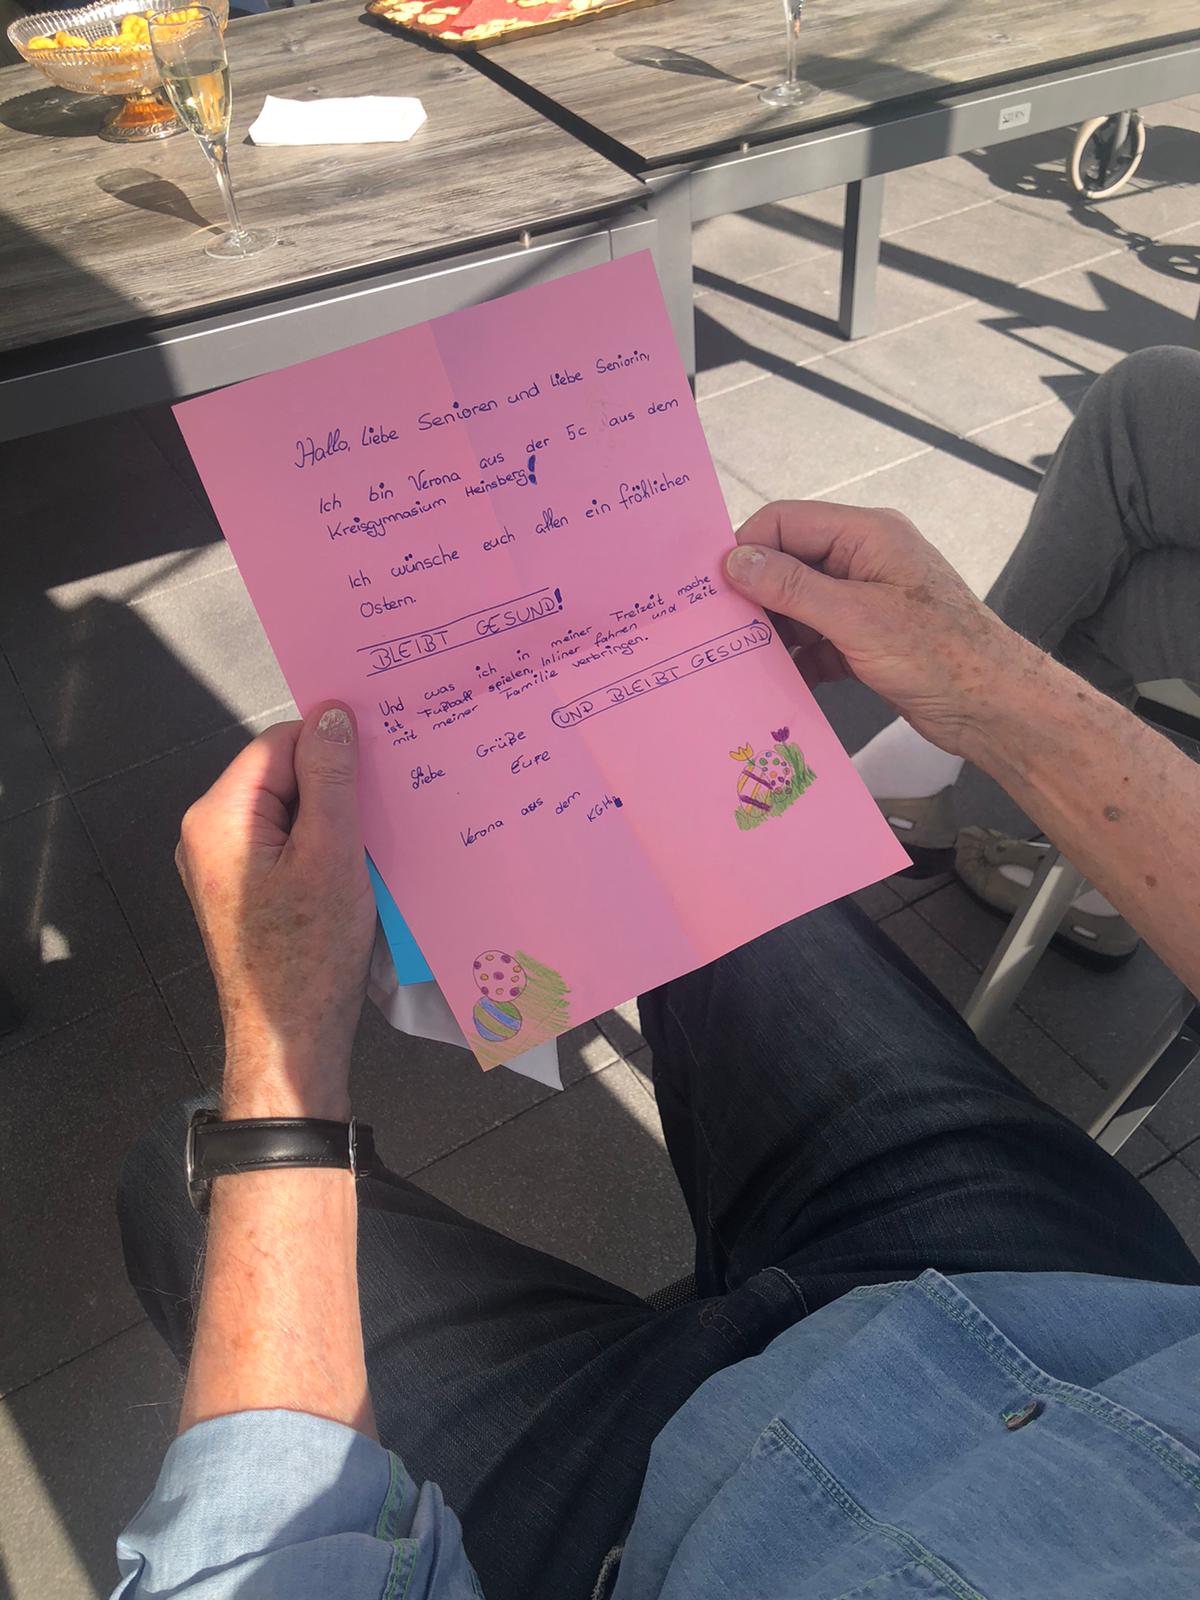 STERN
Hallo, liebe Senioren und liebe Seniorin,
Ich bin Verona aus der 5c aus dem
Kreisgymnasium Heinsberg!
Ich wünsche euch allen ein fröhlichen
Ostern.
BLEIBT GESUND!
Und was ich in meiner Freizeit mache
ist Fußball spielen, Inliner fahren und Zeit
mit meiner Familie verbringen.
UND BLEIBT GESUND
Liebe Grüße
Eure
Verona aus dem